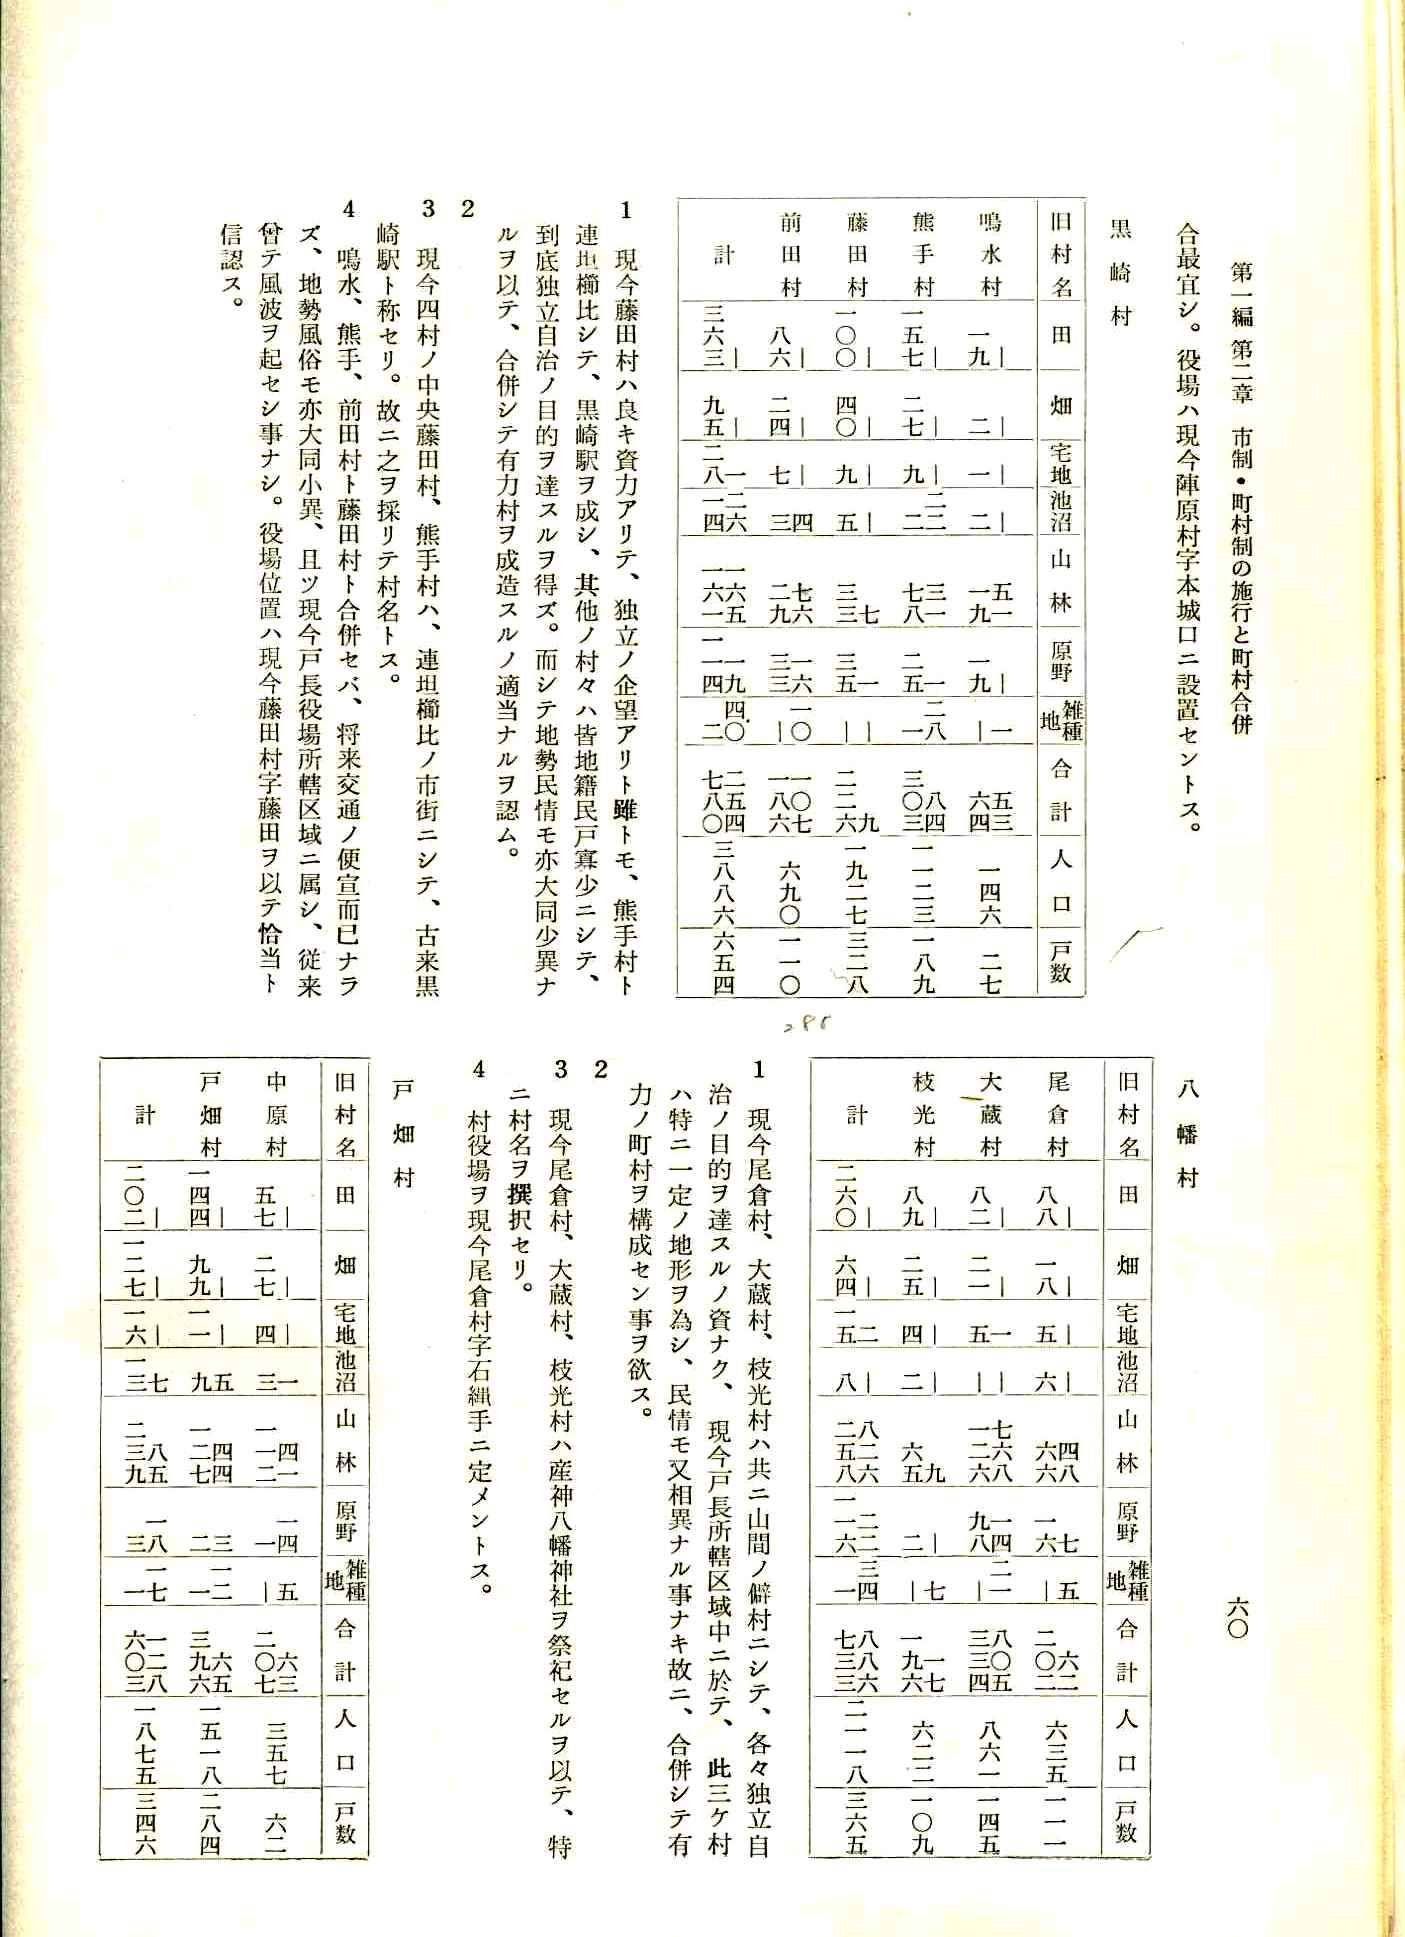 第一編 第二章 市制・町村制の施行と町村合併
六〇
合最宜シ。役場ハ現今陣原村字本城口ニ設置セントス。
黒崎村
旧村名 田 畑 宅地 池沼 山林 原野 雑種地 合計 人口 戸数
鳴水村 ｜ 一九 ｜ 二 ｜ 一 ｜ 二 五一 一九 ｜ 一九 一 ｜ 五三 六四 一四六 二七
熊手村 ｜ 一五七 ｜ 二七 ｜ 九 二三 二 三一 七八 一 二五 二八 一 八四 三〇三 一一二三 一八九
藤田村 ｜ 一〇〇 ｜ 四〇 ｜ 九 ｜ 五 七 三三 一 三五 ｜ ｜ 九 二二六 一九二七 三二八
前田村 ｜ 八六 ｜ 二四 ｜ 七 四 三 七六 二九 一六 三三 一〇 ｜ 一〇七 一八六 六九〇 一一〇
計 ｜ 三六三 ｜ 九五 一 二八 二六 一四 一六五 一六一 一九 一一四 四〇 二 二五四 七八〇 三八八六 六五四
285
1 現今藤田村ハ良キ資力アリテ、独立ノ企望アリト雖トモ、熊手村ト
連坦櫛比シテ、黒崎駅ヲ成シ、其他ノ村々ハ皆地籍民戸寡少ニシテ、
到底独立自治ノ目的ヲ達スルヲ得ズ。而シテ地勢民情モ亦大同少異ナ
ルヲ以テ、合併シテ有力村ヲ成造スルノ適当ナルヲ認ム。
2
3 現今四村ノ中央藤田村、熊手村ハ、連坦櫛比ノ市街ニシテ、古来黒
崎駅ト称セリ。故ニ之ヲ採リテ村名トス。
4 鳴水、熊手、前田村ト藤田村ト合併セバ、将来交通ノ便宣而已ナラ
ズ、地勢風俗モ亦大同小異、且ツ現今戸長役場所轄区域ニ属シ、従来
曾テ風波ヲ起セシ事ナシ。役場位置ハ現今藤田村字藤田ヲ以テ恰当ト
信認ス。
八幡村
旧村名 田 畑 宅地 池沼 山林 原野 雑種地 合計 人口 戸数
尾倉村 ｜ 八八 ｜ 一八 ｜ 五 ｜ 六 四八 六六 七 一六 五 ｜ 六二 二〇二 六三五 一一一
大蔵村 ｜ 八二 ｜ 二一 一 五 ｜ ｜ 七六八 一二六 一四 九八 二一 ｜ 八〇五 三三四 八六一 一四五
枝光村 ｜ 八九 ｜ 二五 ｜ 四 ｜ 二 九 六五 ｜ 二 七 ｜ 一七 一九六 六二二 一〇九
計 ｜ 二六〇 ｜ 六四 二 一五 ｜ 八 八二六 二五八 二二 一一六 三四 一 八八六 七三三 二一一八 三六五
1 現今尾倉村、大蔵村、枝光村ハ共ニ山間ノ僻村ニシテ、各々独立自
治ノ目的ヲ達スルノ資ナク、現今戸長所轄区域中ニ於テ、此三ケ村
ハ特ニ一定ノ地形ヲ為シ、民情モ又相異ナル事ナキ故ニ、合併シテ有
力ノ町村ヲ構成セン事ヲ欲ス。
2
3 現今尾倉村、大蔵村、枝光村ハ産神八幡神社ヲ祭祀セルヲ以テ、特
ニ村名ヲ撰択セリ。
4 村役場ヲ現今尾倉村字石縄手ニ定メントス。
戸畑村
旧村名 田 畑 宅地 池沼 山林 原野 雑種地 合計 人口 戸数
中原村 ｜ 五七 ｜ 二七 ｜ 四 一 三 四一 一一二 一四 一 五 ｜ 六三 二〇七 三五七 六二
戸畑村 ｜ 一四四 ｜ 九九 ｜ 一一 五 九 四四 一二七 三 二 一二 一 六五 三九六 一五一八 二八四
計 ｜ 二〇二 ｜ 一二七 ｜ 一六 七 一三 八五 二三九 一八 三 一七 一 一二八 六〇三 一八七五 三四六